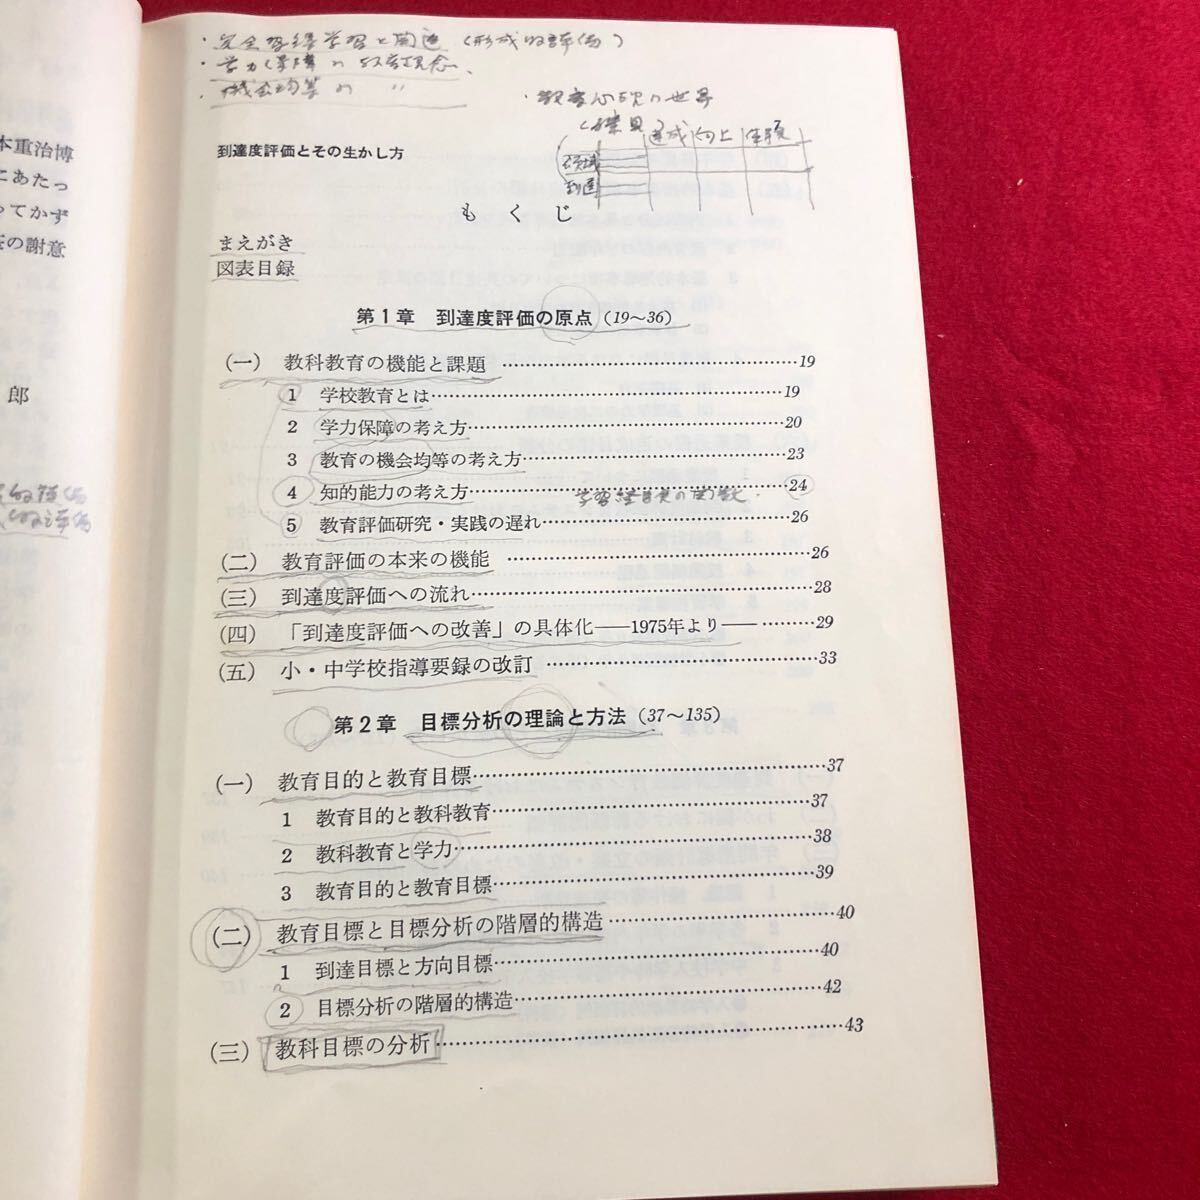 ・完全習得学習と関連（形成的評価）
・学力保障の教育理念、
・機会均等の 〃
・教育心研の世界
達成 向上 体験
領域
到達
到達度評価とその生かし方
もくじ
まえがき
図表目録
第1章 到達度評価の原点（19〜36）
（一） 教科教育の機能と課題 ……19
1 学校教育とは……19
2 学力保障の考え方……20
3 教育の機会均等の考え方……23
4 知的能力の考え方……24
5 教育評価研究・実践の遅れ……26
（二） 教育評価の本来の機能 ……26
（三） 到達度評価への流れ……28
（四） 「到達度評価への改善」の具体化――1975年より――……29
（五） 小・中学校指導要録の改訂 ……33
第2章 目標分析の理論と方法（37〜135）
（一） 教育目的と教育目標……37
1 教育目的と教科教育……37
2 教科教育と学力……38
3 教育目的と教育目標……39
（二） 教育目標と目標分析の階層的構造……40
1 到達目標と方向目標……40
2 目標分析の階層的構造……42
（三） 教科目標の分析……43
本重治博
にあたっ
ってかず
の謝意
郎